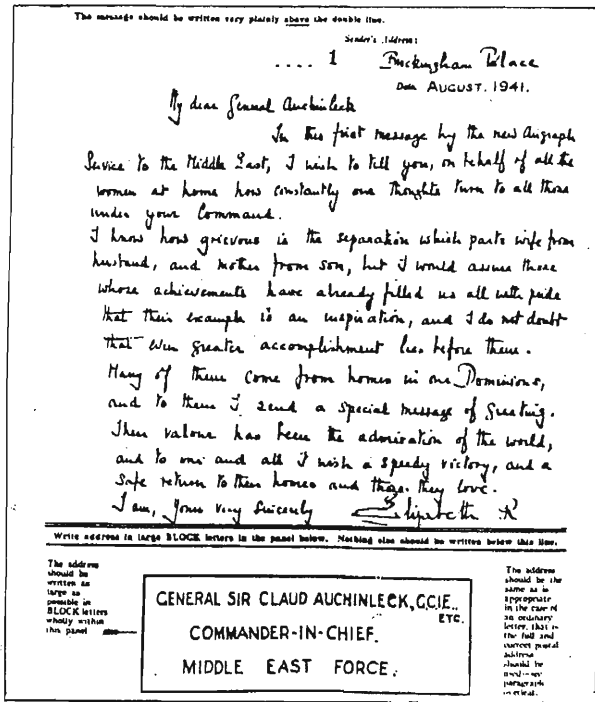 The message should be written very plainly above the double line.
Sender's Address:
.... 1 Buckingham Palace
Date AUGUST, 1941.
My dear General Auchinleck
In this first message by the new Airgraph
Service to the Middle East, I wish to tell you, on behalf of all the
women at home how constantly our thoughts turn to all those
under your Command.
I know how grievous is the separation which parts wife from
husband, and mother from son, but I would assure those
whose achievements have already filled us all with pride
that their example is an inspiration, and I do not doubt
that even greater accomplishment lies before them.
Many of them come from homes in our Dominions,
and to them I send a special message of greeting.
Their valour has been the admiration of the world,
and to one and all I wish a speedy victory, and a
safe return to their homes and those they love.
I am, Yours very sincerely Elizabeth R
Write address in large BLOCK letters in the panel below. Nothing else should be written below this line.
The address
should be
written as
large as
possible in
BLOCK letters
wholly within
this panel
GENERAL SIR CLAUD AUCHINLECK, G.C.I.E.,
ETC.
COMMANDER-IN-CHIEF.
MIDDLE EAST FORCE.
The address
should be the
same as is
appropriate
in the case of
an ordinary
letter, that is
the full and
correct postal
address
should be
used—see
paragraph
overleaf.